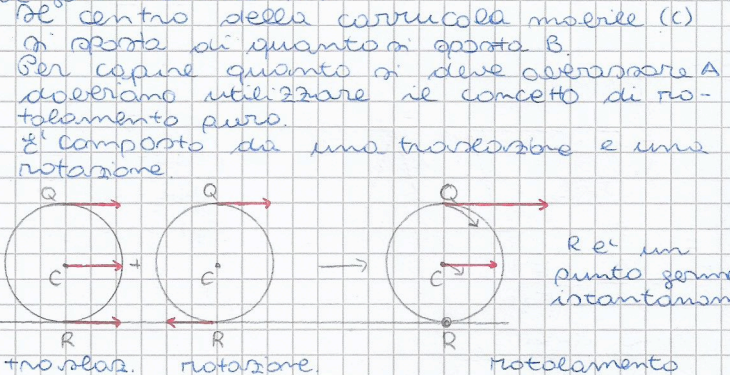 Il centro della carrucola mobile (C)
si sposta di quanto si sposta B.
Per capire quanto si deve abbassare A
dobbiamo utilizzare il concetto di ro-
tolamento puro.
E' composto da una traslazione e una
rotazione.
Q Q Q
C + C C
R è un
punto ferm
istantaneam
R R R
traslaz. rotazione. rotolamento